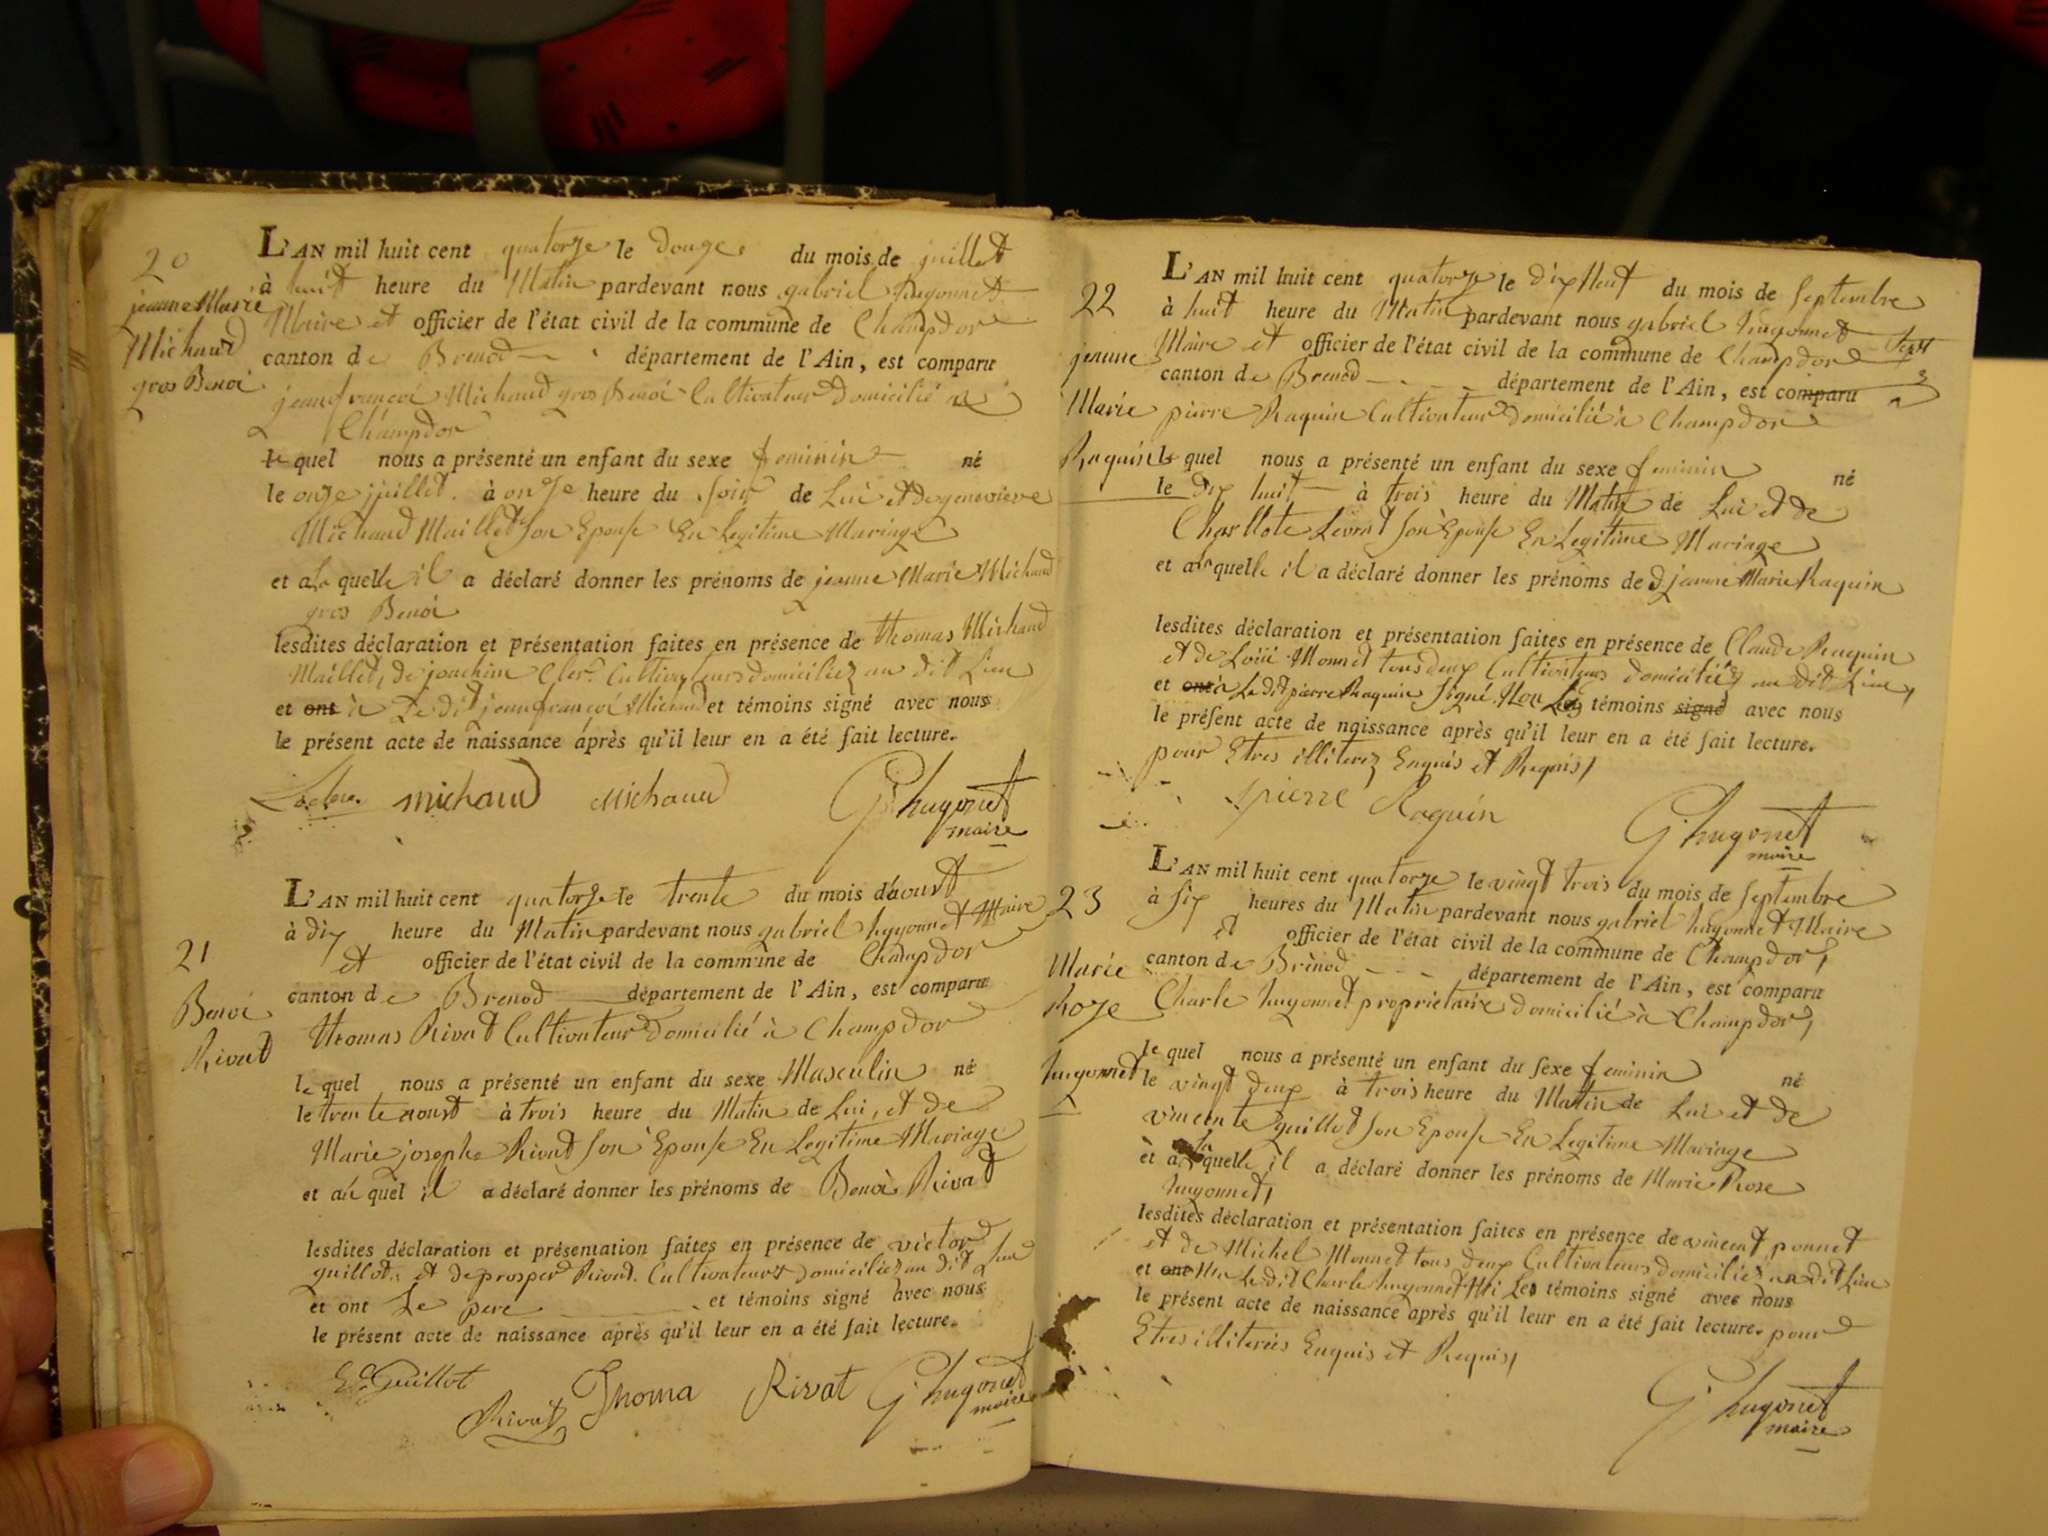 20
jeanne Marie
Michaud
gros Benoi
L'AN mil huit cent quatorze le douze du mois de juillet
à huit heure du Matin pardevant nous gabriel hugonnet
Maire et officier de l'état civil de la commune de Champdor
canton de Brenod département de l'Ain, est comparu
jean françoi Michaud gros Benoi Cultivateur domicilié a
Champdor
le quel nous a présenté un enfant du sexe feminin né
le onze juillet à onze heure du soir de Lui et de genevieve
Michaud Maillet son Epouse En Legitime Mariage
et a la quelle il a déclaré donner les prénoms de jeanne Marie Michaud
gros Benoi
lesdites déclaration et présentation faites en présence de thomas Michaud
Maillet, de joachim Clerc Cultivateurs domiciliez au dit Lieu
et ont à Le dit jean françoi Michaud et témoins signé avec nous
le présent acte de naissance après qu'il leur en a été fait lecture.
michaud Michaud G. hugonet
maire
21
Benoi
Rivat
L'AN mil huit cent quatorze le trente du mois d'aoust
à dix heure du Matin pardevant nous gabriel hugonnet Maire
et officier de l'état civil de la commune de Champdor
canton de Brenod département de l'Ain, est comparu
thomas Rivat Cultivateur domicilié à Champdor
le quel nous a présenté un enfant du sexe Masculin né
le trente aoust à trois heure du Matin de Lui, et de
Marie josephe Rivat son Epouse En Legitime Mariage
et au quel il a déclaré donner les prénoms de Benoi Rivat
lesdites déclaration et présentation faites en présence de victor
guillot et de prosper Rivat Cultivateurs domiciliez au dit Lieu
et ont Le pere et témoins signé avec nous
le présent acte de naissance après qu'il leur en a été fait lecture.
Guillot
Rivat Thoma Rivat G. hugonet
maire
22
jeanne
Marie
Raquin
L'AN mil huit cent quatorze le dix Neuf du mois de Septembre
à huit heure du Matin pardevant nous gabriel hugonnet
Maire et officier de l'état civil de la commune de Champdor
canton de Brenod département de l'Ain, est comparu
pierre Raquin Cultivateur domicilié à Champdor
le quel nous a présenté un enfant du sexe feminin né
le dix huit à trois heure du Matin de Lui et de
Charllote Levrat son Epouse En Legitime Mariage
et a la quelle il a déclaré donner les prénoms de jeanne Marie Raquin
lesdites déclaration et présentation faites en présence de Claude Raquin
et de Loüi Monnet tous deux Cultivateurs domiciliéz au dit Lieu,
et ont à Le dit pierre Raquin signé Non Les témoins signé avec nous
le présent acte de naissance après qu'il leur en a été fait lecture.
pour Etres illiterez Enquis et Requis,
pierre Raquin
G. hugonet
maire
23
Marie
Roze
hugonnet
L'AN mil huit cent quatorze le vingt trois du mois de Septembre
à six heures du Matin pardevant nous gabriel hugonnet Maire
et officier de l'état civil de la commune de Champdor,
canton de Brenod département de l'Ain, est comparu
Charle hugonnet proprietaire domicilié à Champdor,
le quel nous a présenté un enfant du sexe feminin né
le vingt deux à trois heure du Matin de Lui et de
vincente guillot son Epouse En Legitime Mariage
et a la quelle il a déclaré donner les prénoms de Marie Rose
hugonnet,
lesdites déclaration et présentation faites en présence de vincent ponnet
et de Michel Monnet tous deux Cultivateurs domiciliés au dit Lieu
et ont Le dit Charle hugonnet Ni Les témoins signé avec nous
le présent acte de naissance après qu'il leur en a été fait lecture. pour
Etres illiterés Enquis et Requis,
G. hugonet
maire